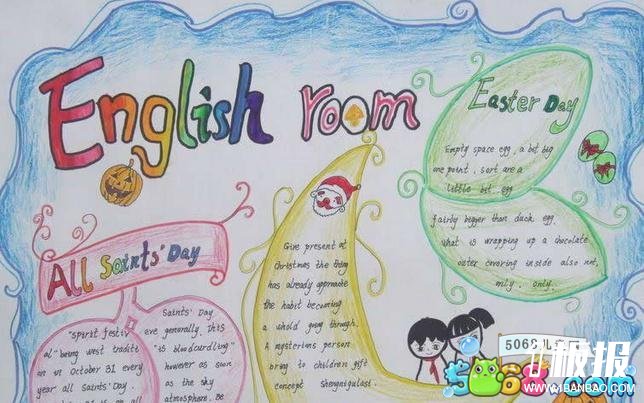 English room
Easter Day
Empty space egg, a bit big
one point, sort are a
little bit egg
fairly bigger than duck egg.
What is wrapping up a chocolate
outer covering inside also not
only. only.
All Saints' Day
"Spirit festiv
al" being west tradite
on in October 31 every
year all Saints' Day.
Saints' Day
eve generally. this
"is bloodcurdling"
however as soon
as the sky
atmosphere. Be
Give present at
Christmas the thing
has already appromate
the habit becoming
a whold going through.
A mysterious person
bring to children gift
concept
5068儿
极报
5068
WWW.1BANBAO.COM